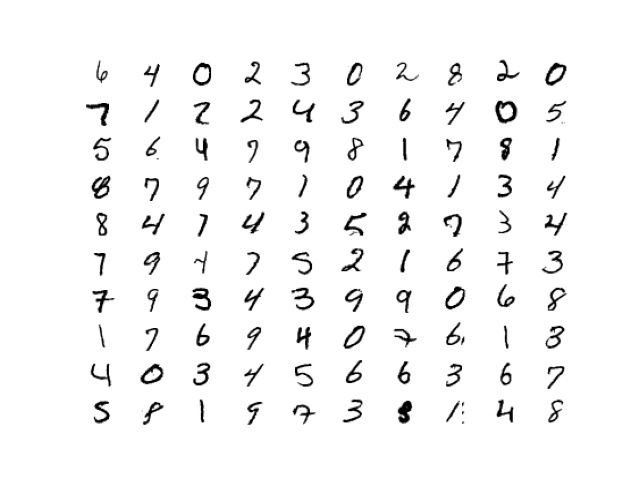 6 4 0 2 3 0 2 8 2 0
7 1 2 2 4 3 6 4 0 5
5 6 4 7 9 8 1 7 8 1
8 7 9 7 1 0 4 1 3 4
8 4 7 4 3 5 2 7 3 4
7 9 4 7 5 2 1 6 7 3
7 9 3 4 3 9 9 0 6 8
1 7 6 9 4 0 7 6 1 3
4 0 3 4 5 6 6 3 6 7
5 8 1 9 7 3 8 1 4 8